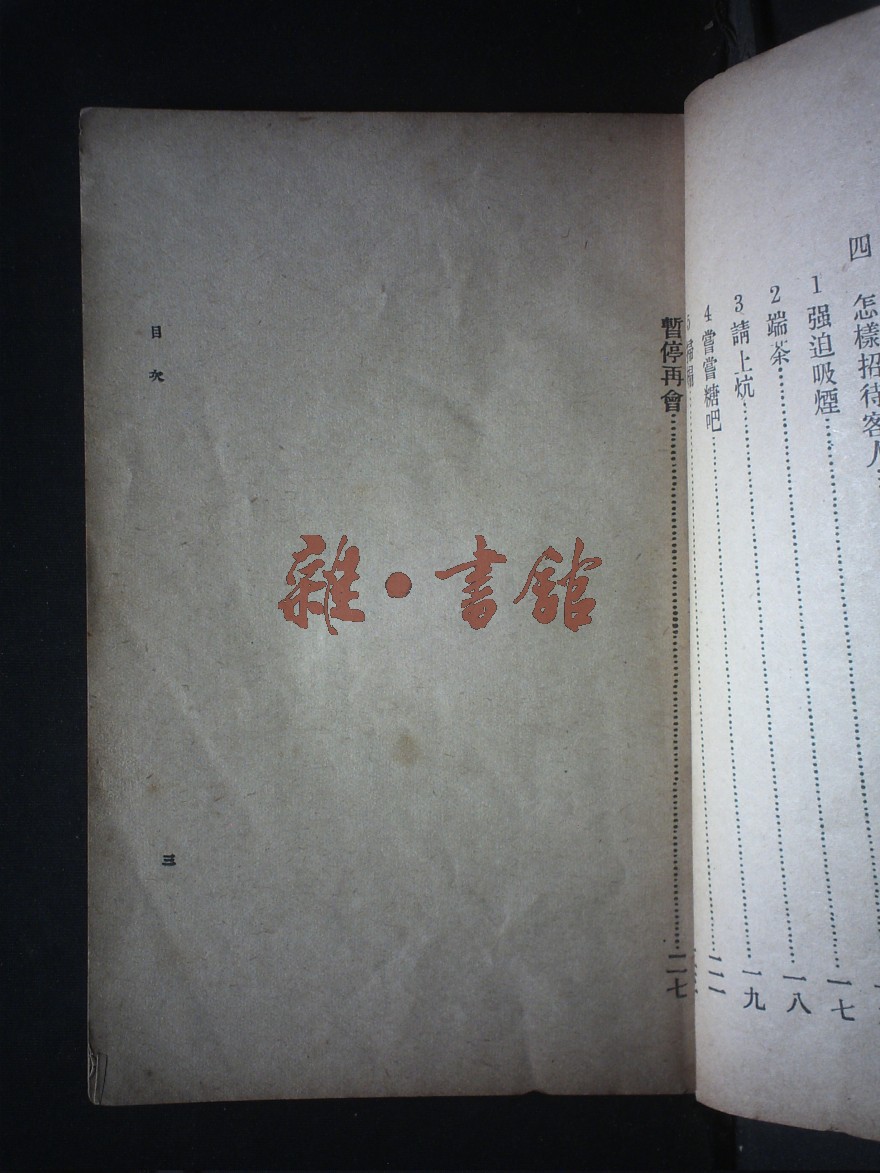 四 怎樣招待客人
1 强迫吸煙……一七
2 端茶……一八
3 請上炕……一九
4 嘗嘗糖吧……二一
5
暫停再會……二七
目次
三
雜·書館